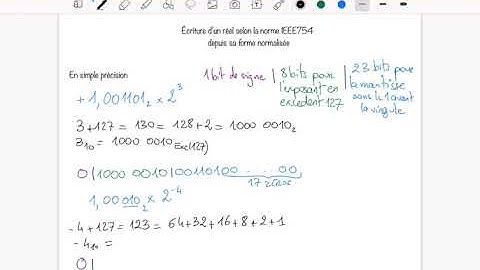 Écriture d'un réel selon la norme IEEE754
depuis sa forme normalisée
En simple précision
1 bit de signe | 8 bits pour l'exposant en excédent 127 | 23 bits pour la mantisse sans le 1 avant la virgule
+ 1,001101₂ × 2³
3 + 127 = 130 = 128 + 2 = 1000 0010₂
3₁₀ = 1000 0010 Exc(127)
0 | 1000 0010 | 00110100 . . . . 00
17 zéros
1,00010₂ × 2⁻⁴
- 4 + 127 = 123 = 64 + 32 + 16 + 8 + 2 + 1
- 4₁₀ =
0 |